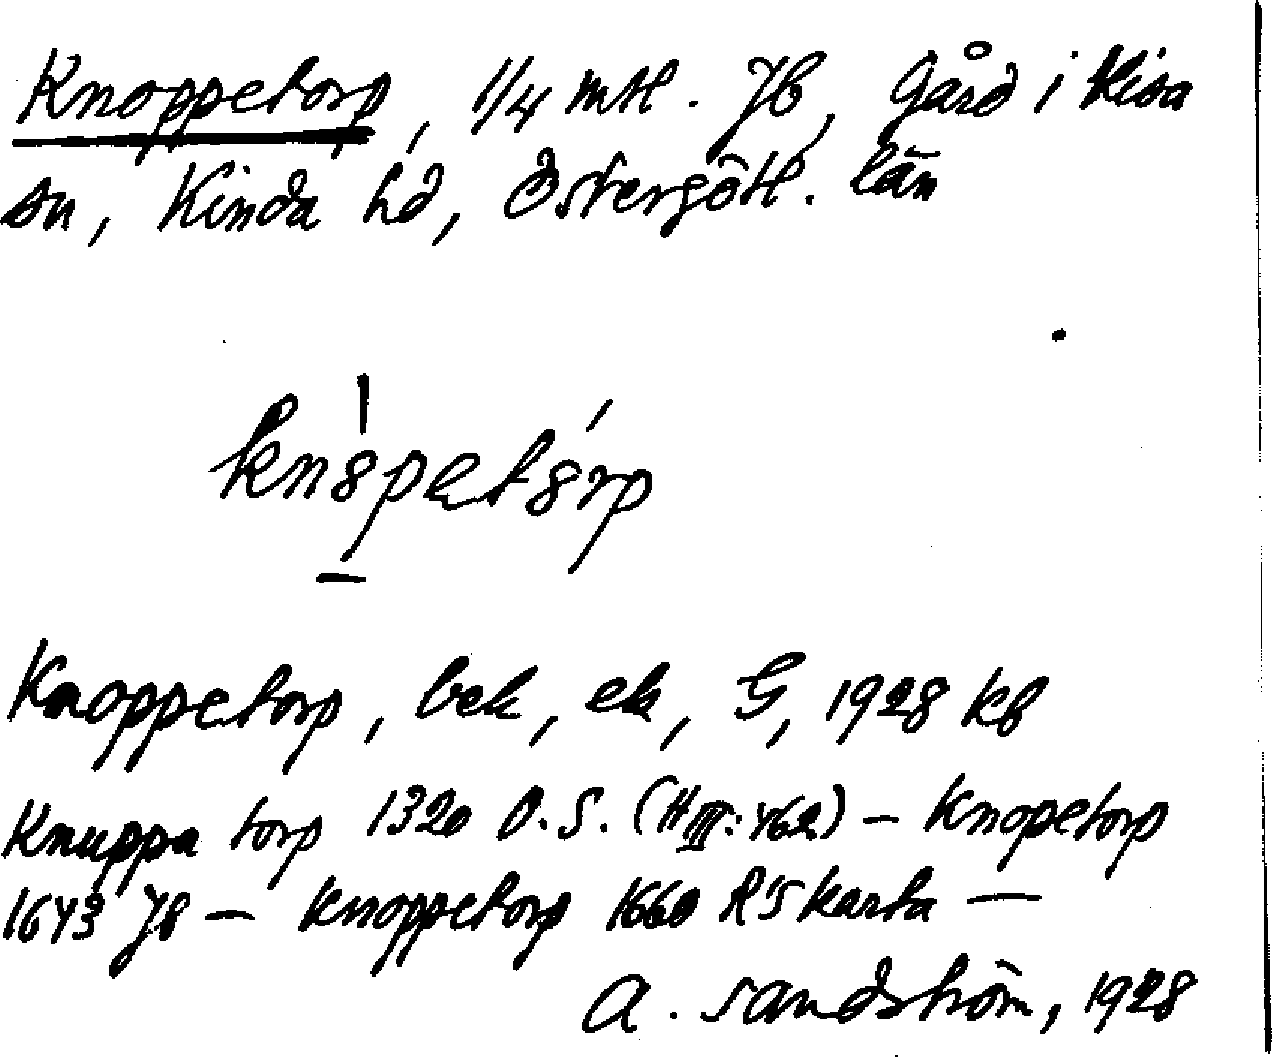 Knoppetorp, 1/4 mtl. Jb, Gård i Kisa
sn, Kinda hd, Östergötl. län
kn8pet8rp
Knoppetorp, bek, ek, G, 1928 kb
Knuppa torp 1320 D.S. (H III: 462) – Knopetorp
1643 Jb – Knoppetorp 1660 R's karta –
A. Sandström, 1928